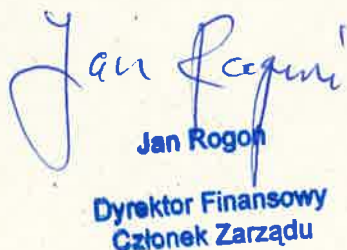 Jan
Jan Rogoń
Dyrektor Finansowy
Członek Zarządu